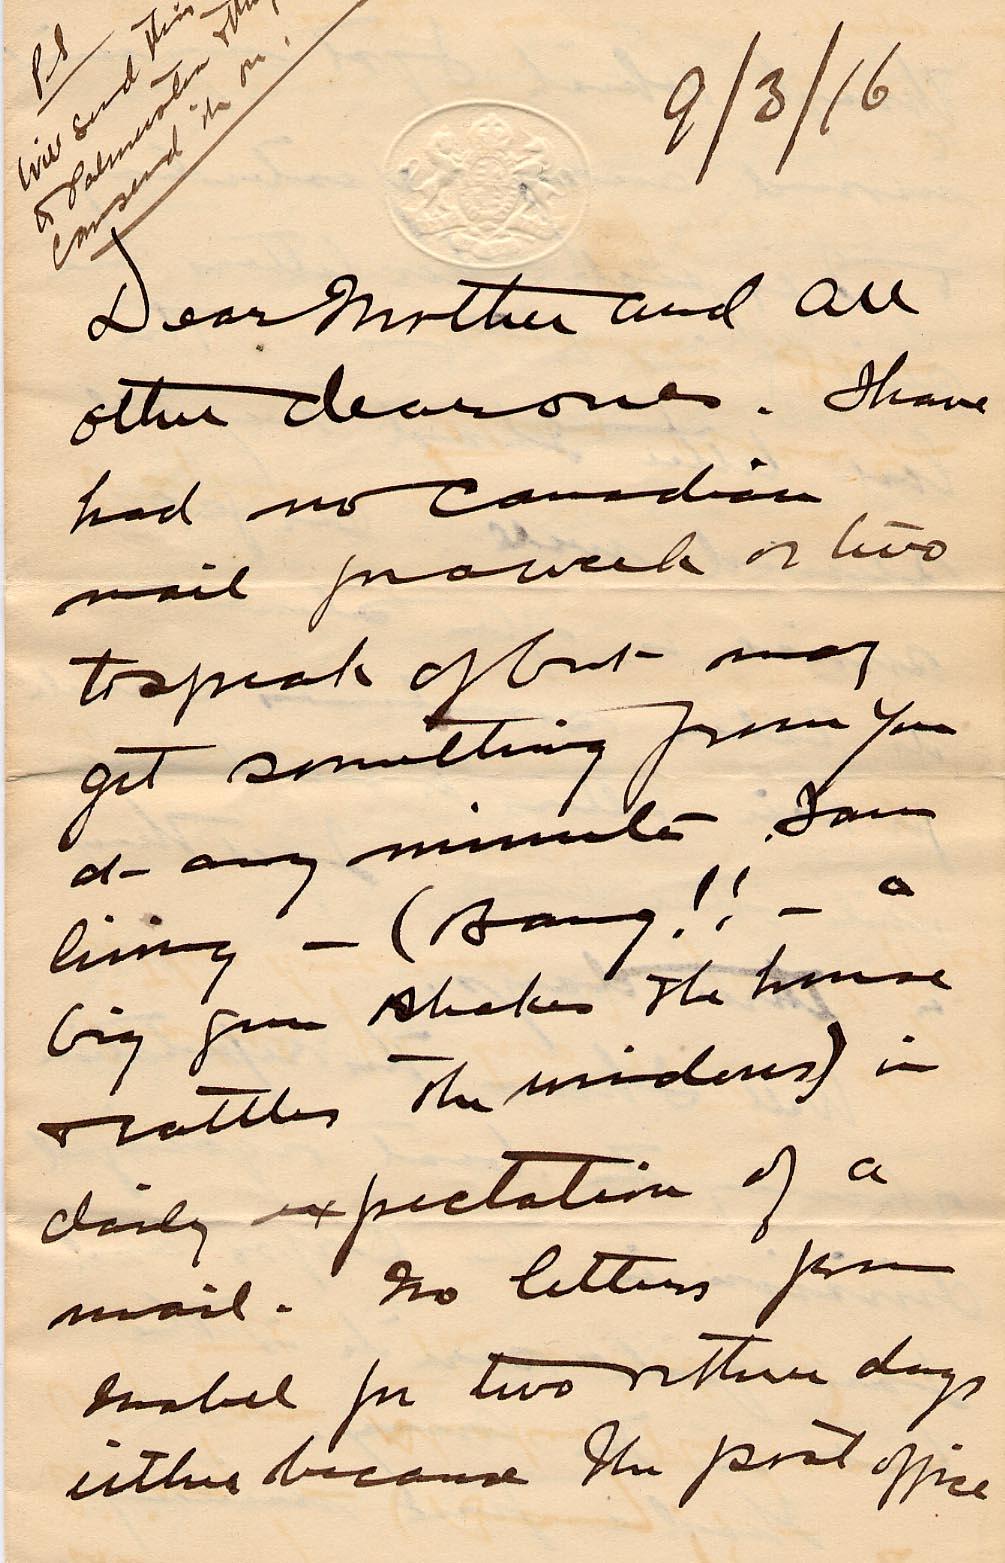 PS
Will send this
to Palmerston & they
can send it on.
9/3/16
Dear Mother and all
other dear ones. I have
had no Canadian
mail for a week or two
to speak of but may
get something from you
at any minute. I am
living – (Bang!! – a
big gun shakes the house
& rattles the windows) in
daily expectation of a
mail. No letters from
Mabel for two or three days
either because the post office